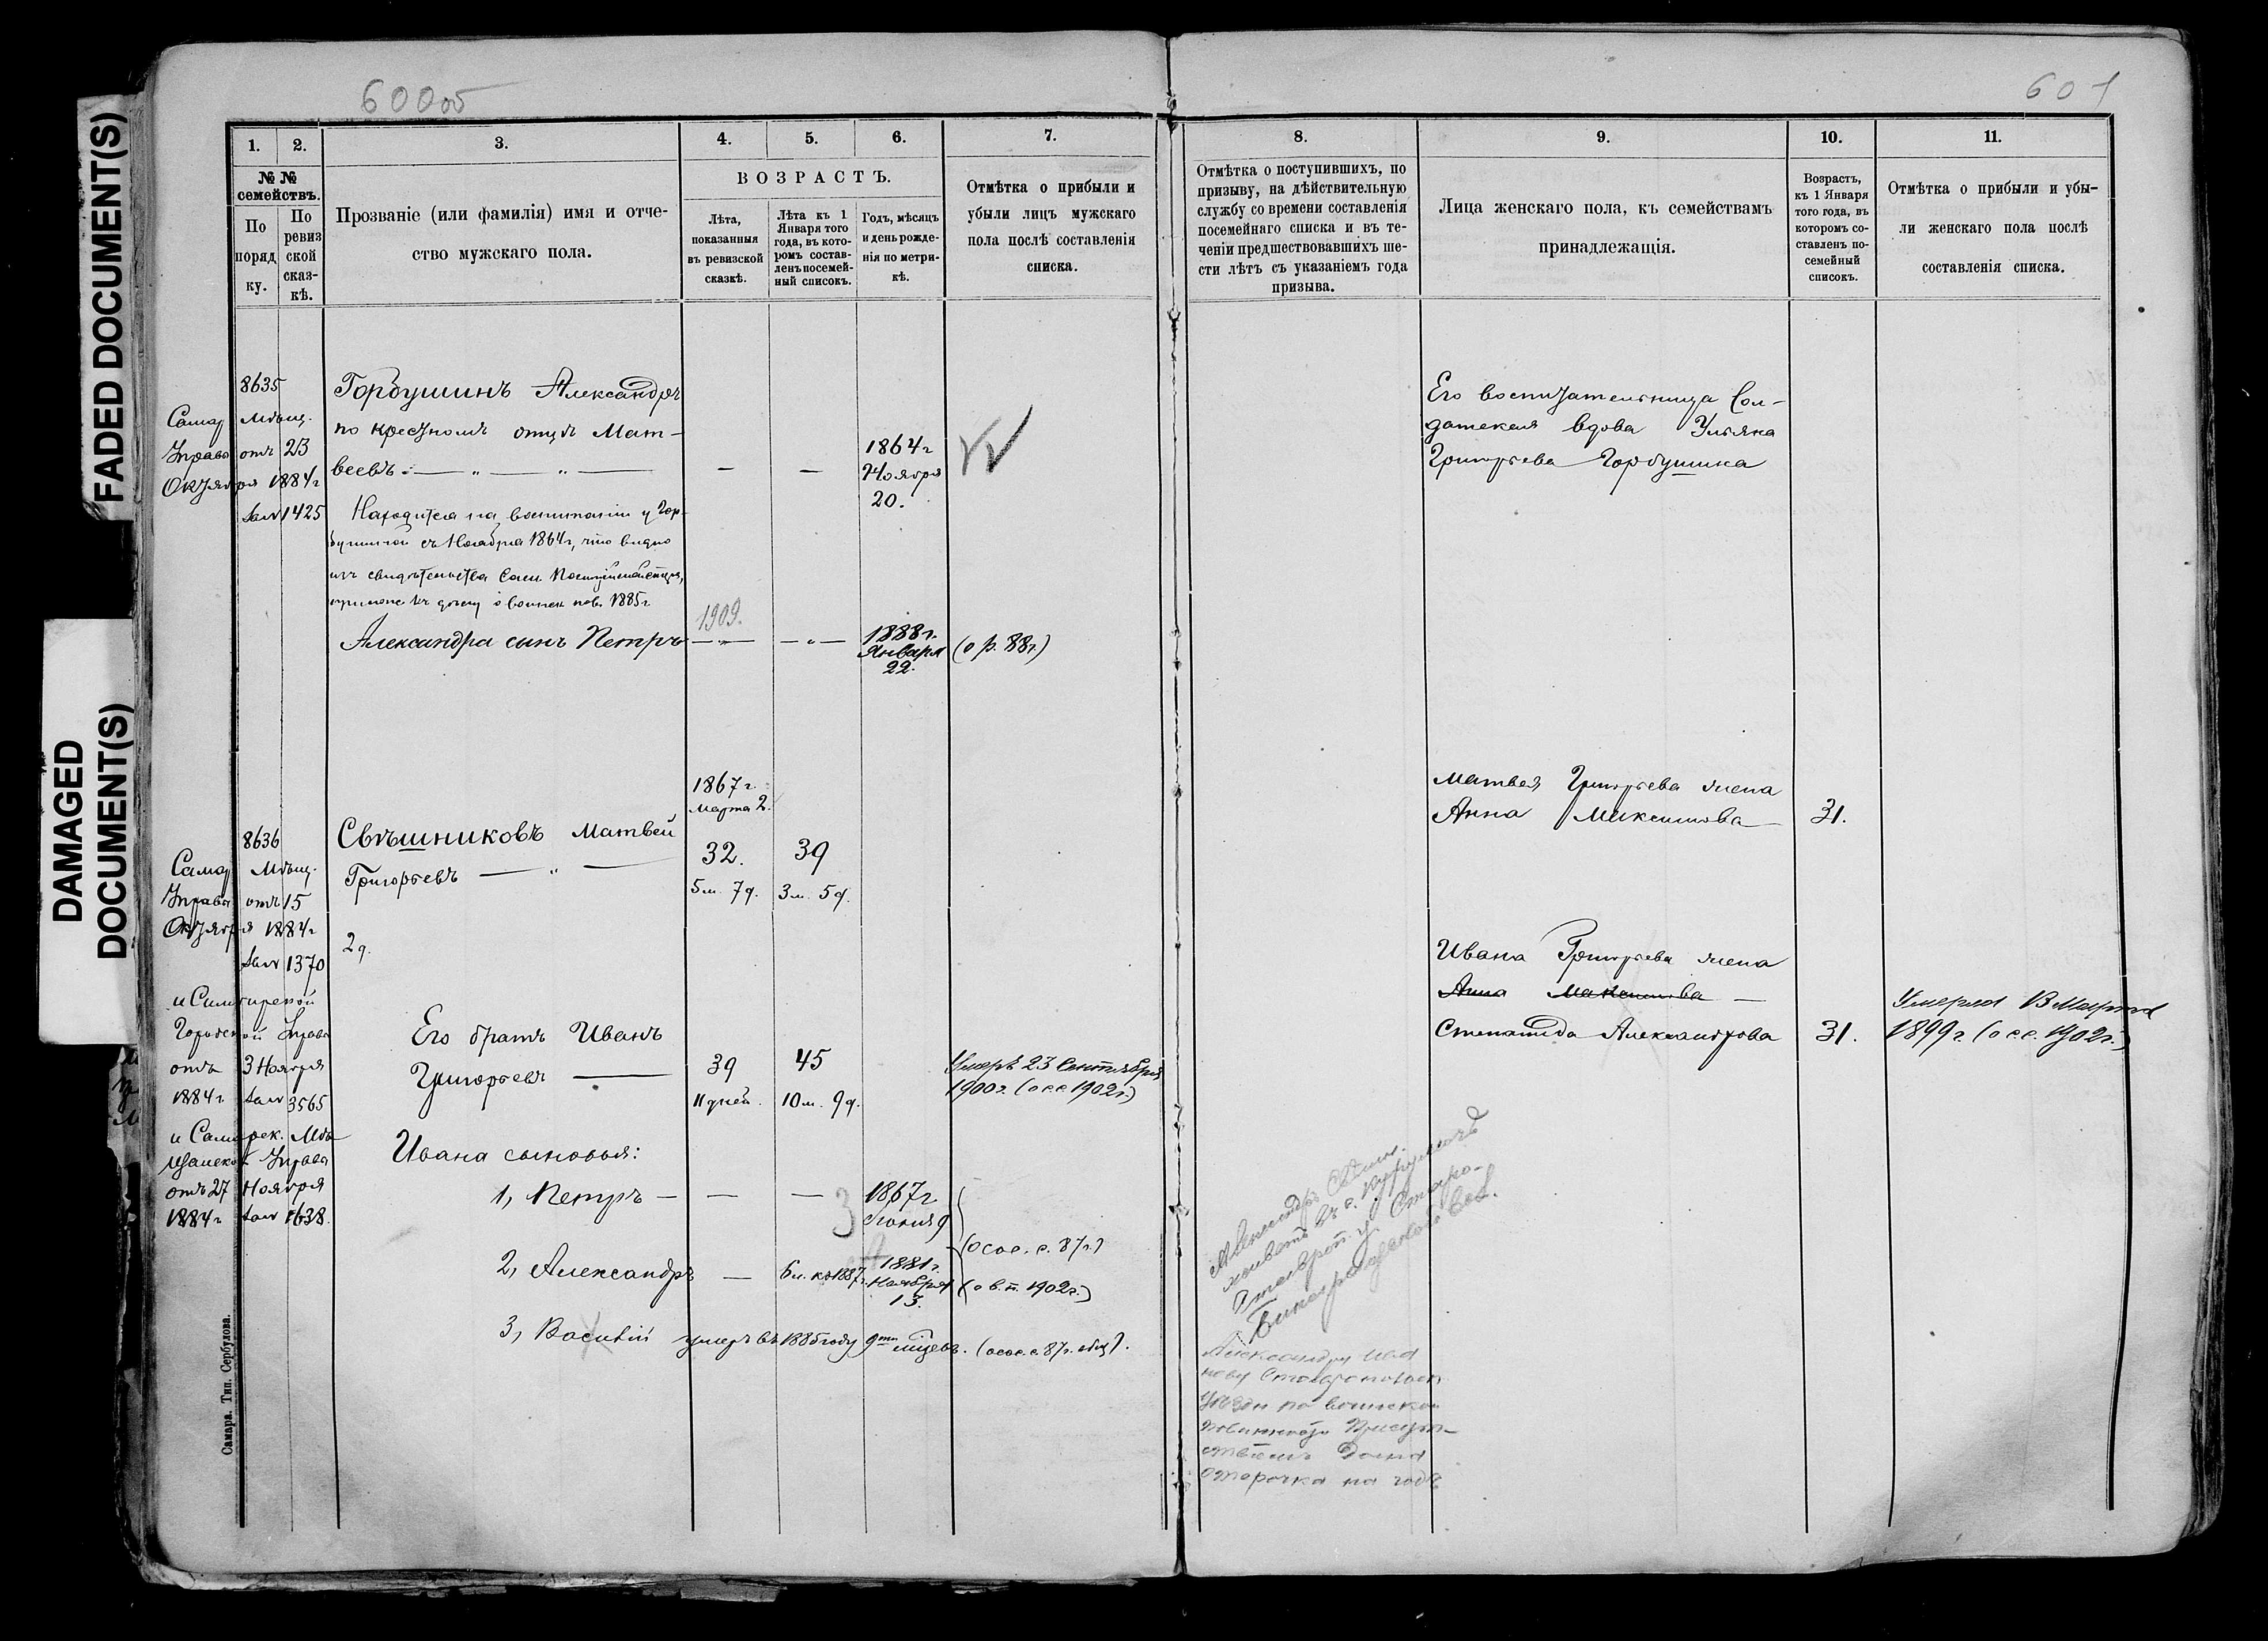 FADED DOCUMENT(S)
DAMAGED
DOCUMENT(S)
600 об
601
1.
2.
3.
4.
5.
6.
7.
8.
9.
10.
11.
№ №
семействъ.
По
поряд
ку.
По
ревиз
ской
сказ-
кѣ.
Прозваніе (или фамилія) имя и отче-
ство мужскаго пола.
ВОЗРАСТЪ.
Лѣта,
показанныя
въ ревизской
сказкѣ.
Лѣта къ 1
Января того
года, въ кото-
ромъ состав-
ленъ посемей-
ный списокъ.
Годъ, мѣсяцъ
и день рожде-
нія по метри-
кѣ.
Отмѣтка о прибыли и
убыли лицъ мужскаго
пола послѣ составленія
списка.
Отмѣтка о поступившихъ, по
призыву, на дѣйствительную
службу со времени составленія
посемейнаго списка и въ те-
ченіи предшествовавшихъ ше-
сти лѣтъ съ указаніемъ года
призыва.
Лица женскаго пола, къ семействамъ
принадлежащія.
Возрастъ,
къ 1 Января
того года, въ
которомъ со-
ставленъ по-
семейный
списокъ.
Отмѣтка о прибыли и убы-
ли женскаго пола послѣ
составленія списка.
8635
Самар Мѣщ.
Управы отъ 23
Октября 1884 г
за № 1425
Горбушинъ Александръ
по крестномъ отцѣ Мат-
веевъ — „ — „ —
— — 1864 г
Ноября
20.
Находится на воспитаніи у Гор-
бушиной съ Ноября 1864 г, что видно
изъ свидѣтельства Сам Полицiймейстера,
1885 г
Александра сынъ Петръ
1909.
— „ — — „ — 1888 г.
Января
22.
(о р. 88 г.)
Его воспитательница Сол-
датская вдова Ульяна
Григорьева Горбушина
8636
Самар Мѣщ.
Управы отъ 15
Октября 1884 г
за № 1370
и Симбирской
Городской Управы
отъ 3 Ноября
1884 г за № 3565
и Самарск. Мѣ
щанской Управы
отъ 27 Ноября
1884 г за № 1638.
Свѣшниковъ Матвей
Григорьевъ — „ —
2 д.
1867 г.
Марта 2.
32.
5 м. 7 д.
39
3 м. 5 д.
Матвея Григорьева жена
Анна Максимова — 31.
Его братъ Иванъ
Григорьевъ —
39
11 дней.
45
10 м. 9 д.
Умеръ 23 Сентября
1900 г. (о с.с. 1902 г.)
Ивана Григорьева жена
Анна Максимова —
Степанида Александрова 31.
Умерла В Марта
1899 г. (о с.с. 1902 г.)
Ивана сыновья:
1, Петръ — — — 1867 г
Іюня 9
3
(осос. с. 87 г.)
2, Александръ — 6 л. къ 1887 г. 1881 г.
Ноября
13.
(о в.п. 1902 г.)
3, Василій умеръ въ 1885 году 9ти мцевъ. (осос. с. 87 г. общ).
Александръ
живетъ въ с.
Ставроп. у.
Александру Ива
нову Ставропольск
Уѣздн по воинской
повинности Присут-
ствіемъ дана
отсрочка на годъ
Самара. Тип. Сербулова.